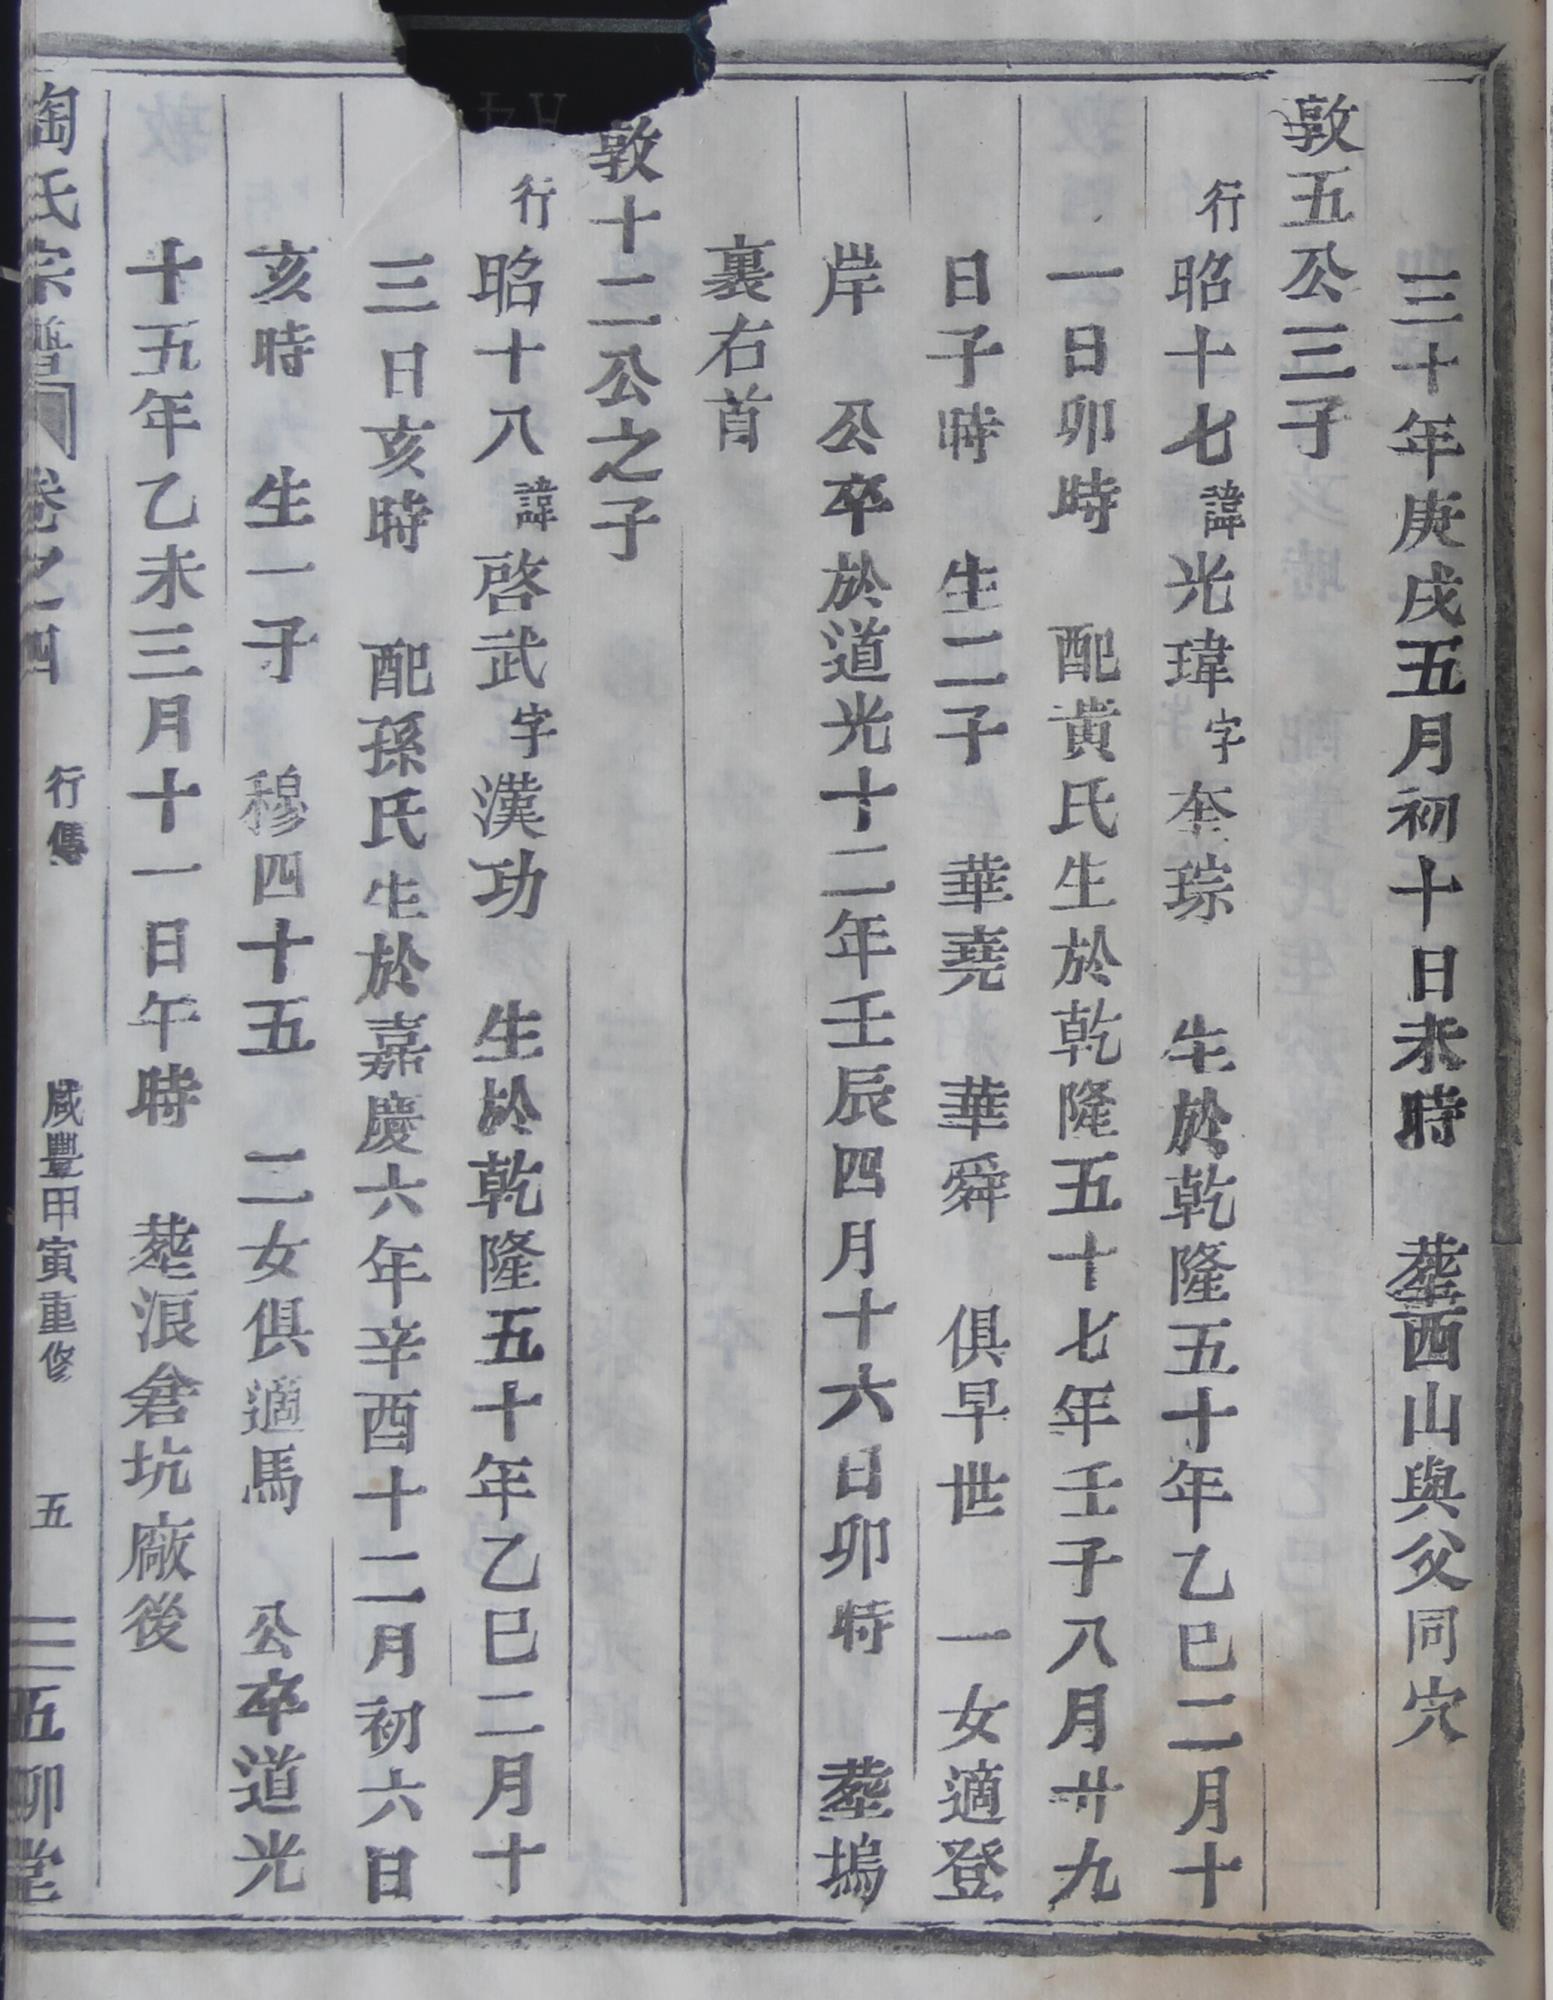 三十年庚戌五月初十日未時　塟西山與父同穴
敦五公三子
行昭十七諱光瑋字奎琮　生於乾隆五十年乙巳二月十
一日卯時　配黄氏生於乾隆五十七年壬子八月廿九
日子時　生二子　華堯　華舜　俱早世　一女適登
岸　公卒於道光十二年壬辰四月十六日卯時　塟塢
裏右首
敦十二公之子
行昭十八諱啓武字漢功　生於乾隆五十年乙巳二月十
三日亥時　配孫氏生於嘉慶六年辛酉十二月初六日
亥時　生一子　穆四十五　二女俱適馬　公卒道光
十五年乙未三月十一日午時　塟浪倉坑廠後
陶氏宗譜　卷之四　行傳　咸豐甲寅重修　五　五柳堂